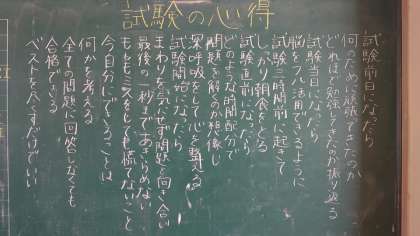 試験の心得
試験前日になったら
何のために頑張ってきたのか
どれほど勉強してきたのか振り返る
試験当日になったら
脳をフル活用できるように
試験三時間前に起きて
しっかり朝食をとる
試験直前になったら
どのような時間配分で
問題を解くのか想像し
深呼吸をして心を整える
試験開始になったら
まわりを気にせず問題と向き合い
最後の一秒まであきらめない
もしもミスをしても慌てないこと
今自分にできることは
何かを考える
全ての問題に回答しなくても
合格できる
ベストを尽くすだけでいい